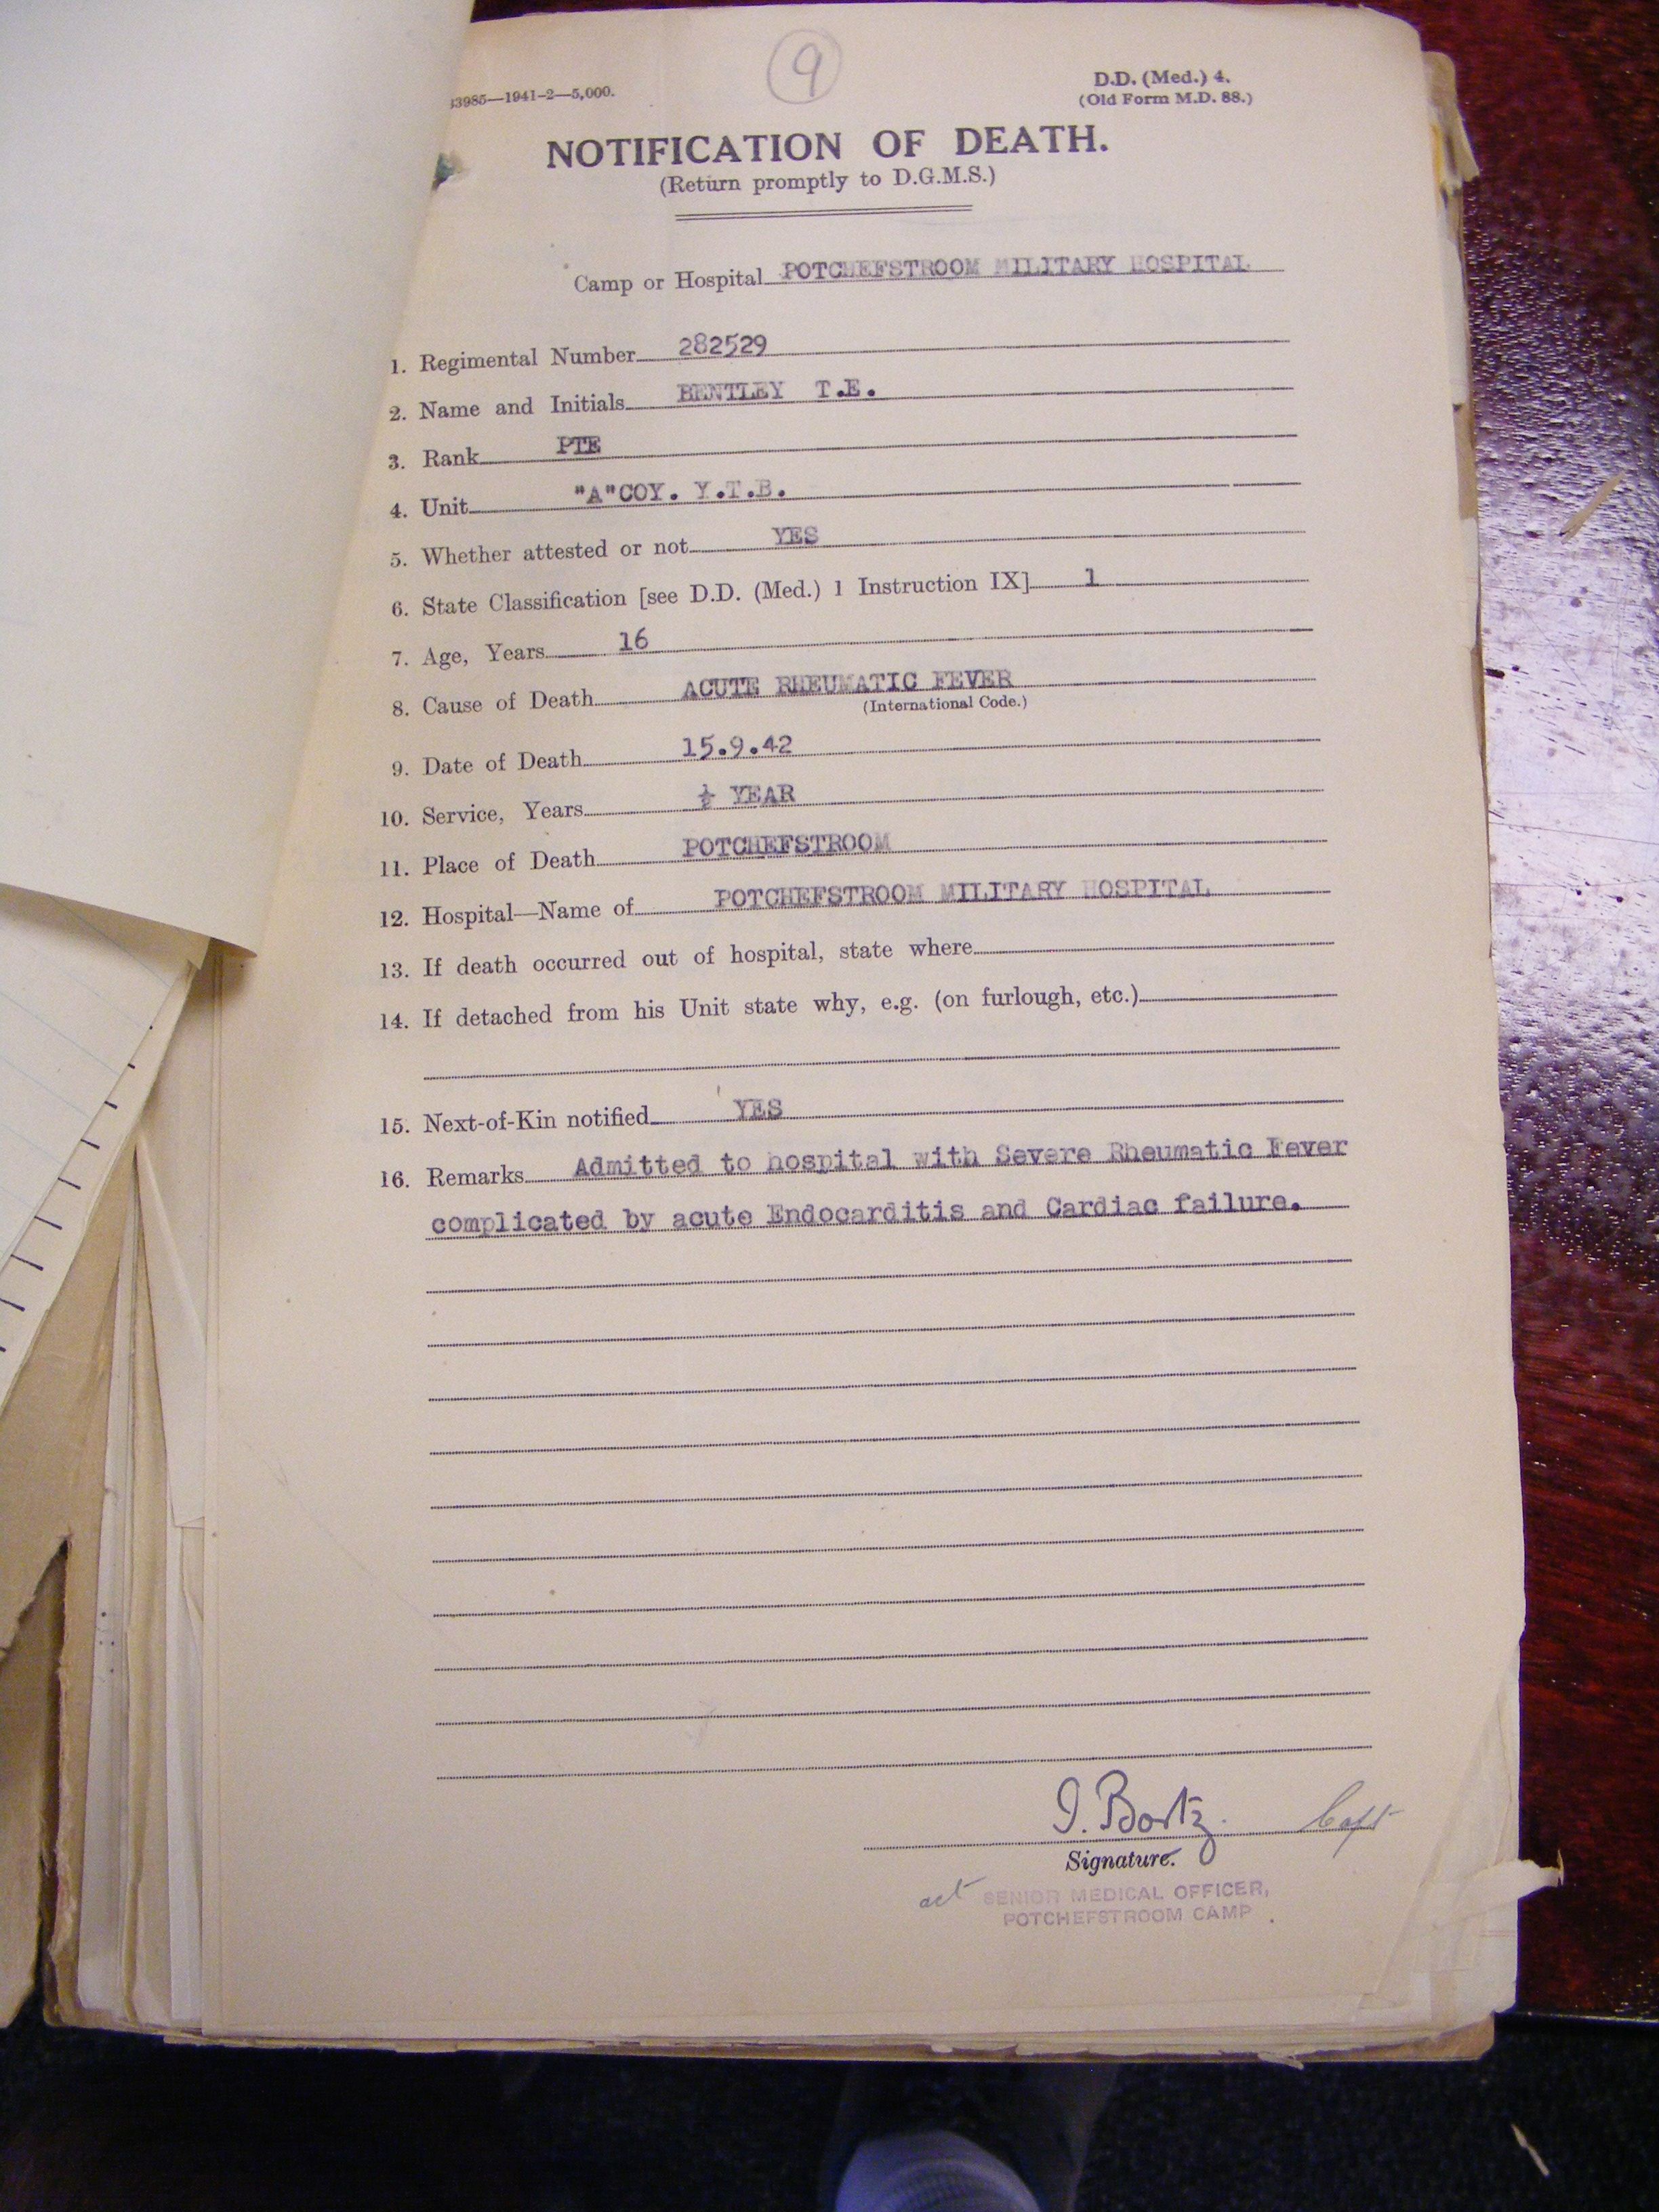 9
33985—1941-2—5,000.
D.D. (Med.) 4.
(Old Form M.D. 88.)
NOTIFICATION OF DEATH.
(Return promptly to D.G.M.S.)
Camp or Hospital POTCHEFSTROOM MILITARY HOSPITAL
1. Regimental Number 282529
2. Name and Initials BENTLEY T.E.
3. Rank PTE
4. Unit "A"COY. Y.T.B.
5. Whether attested or not YES
6. State Classification [see D.D. (Med.) 1 Instruction IX] 1
7. Age, Years 16
8. Cause of Death ACUTE RHEUMATIC FEVER
(International Code.)
9. Date of Death 15.9.42
10. Service, Years ½ YEAR
11. Place of Death POTCHEFSTROOM
12. Hospital—Name of POTCHEFSTROOM MILITARY HOSPITAL
13. If death occurred out of hospital, state where
14. If detached from his Unit state why, e.g. (on furlough, etc.)
15. Next-of-Kin notified YES
16. Remarks Admitted to hospital with Severe Rheumatic Fever
complicated by acute Endocarditis and Cardiac failure.
I. Bortz. Capt
Signature.
act SENIOR MEDICAL OFFICER,
POTCHEFSTROOM CAMP.